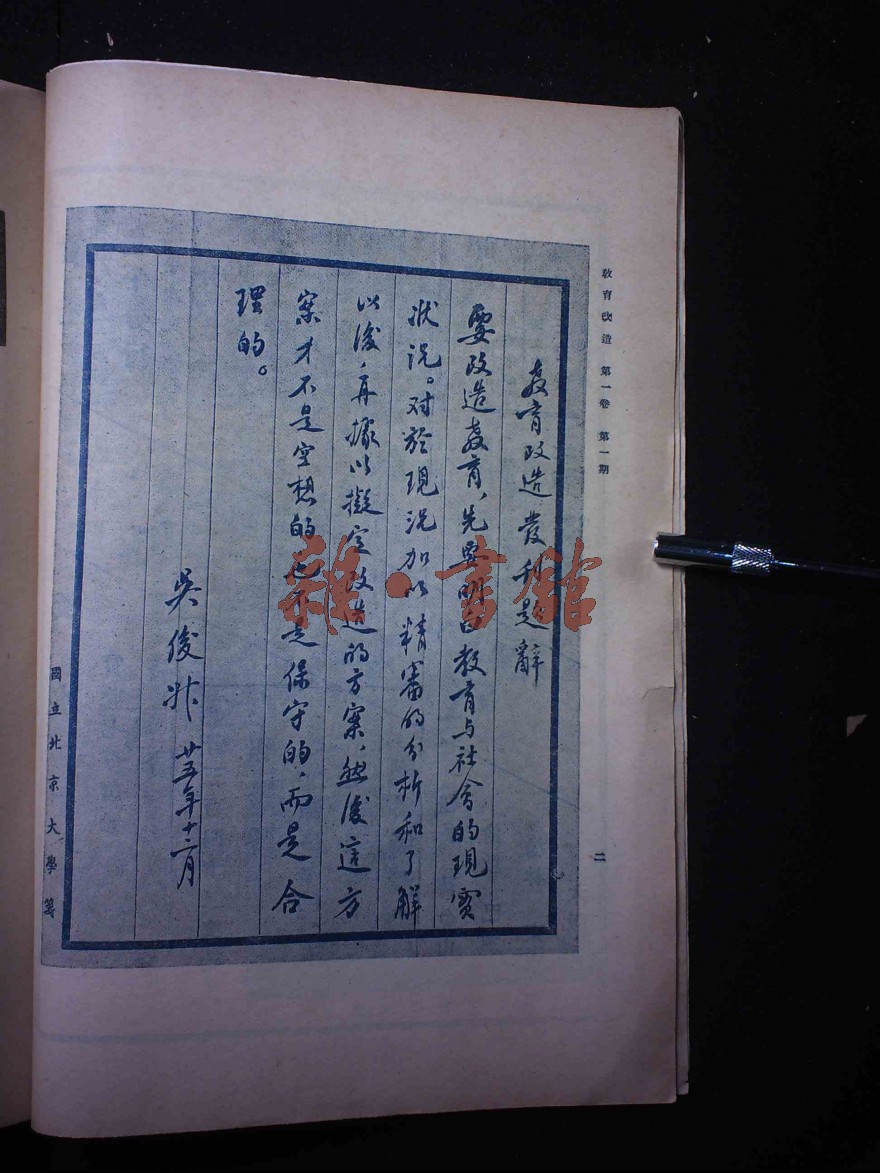 教育改造 第一卷 第一期
二
教育改造發刊題辭
要改造教育，先要明白教育与社會的現實
狀况。对於現况加以精審的分析和了解
以後，再據以擬定改造的方案，然後這方
案才不是空想的也不是保守的，而是合
理的。
吳俊升 廿五年十二月
國立北京大學箋
雜·書館